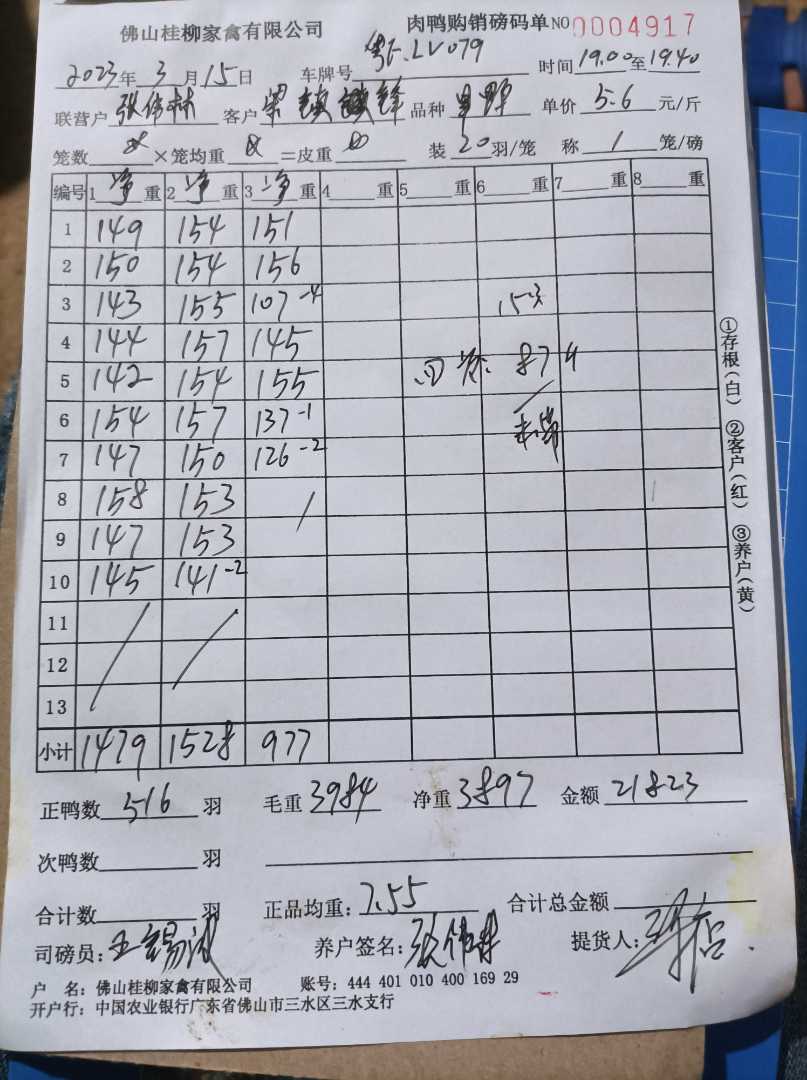 佛山桂柳家禽有限公司 肉鸭购销磅码单 NO 0004917
2023年3月15日 车牌号 粤F.LV079 时间19.00至19.40
联营户 张伟林 客户 梁 锋 品种 单价 5.6 元/斤
笼数 ×笼均重 =皮重 装 20 羽/笼 称 1 笼/磅
编号 1 净 重 2 净 重 3 净 重 4 重 5 重 6 重 7 重 8 重
1 149 154 151
2 150 154 156
3 143 155 107-4 153
4 144 157 145
5 142 154 155 87
6 154 157 137-1
7 147 150 126-2
8 158 153
9 147 153
10 145 141-2
11
12
13
小计 1479 1528 977
①存根(白) ②客户(红) ③养户(黄)
正鸭数 516 羽 毛重 3984 净重 3897 金额 21823
次鸭数 羽
合计数 羽 正品均重: 7.55 合计总金额
司磅员: 王锡 养户签名: 张伟林 提货人:
户 名: 佛山桂柳家禽有限公司 账号: 444 401 010 400 169 29
开户行: 中国农业银行广东省佛山市三水区三水支行